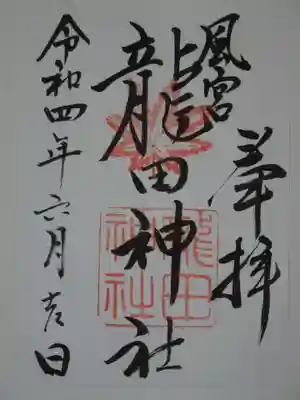 奉拝
風宮
龍田神社
令和四年六月吉日
龍田
神社